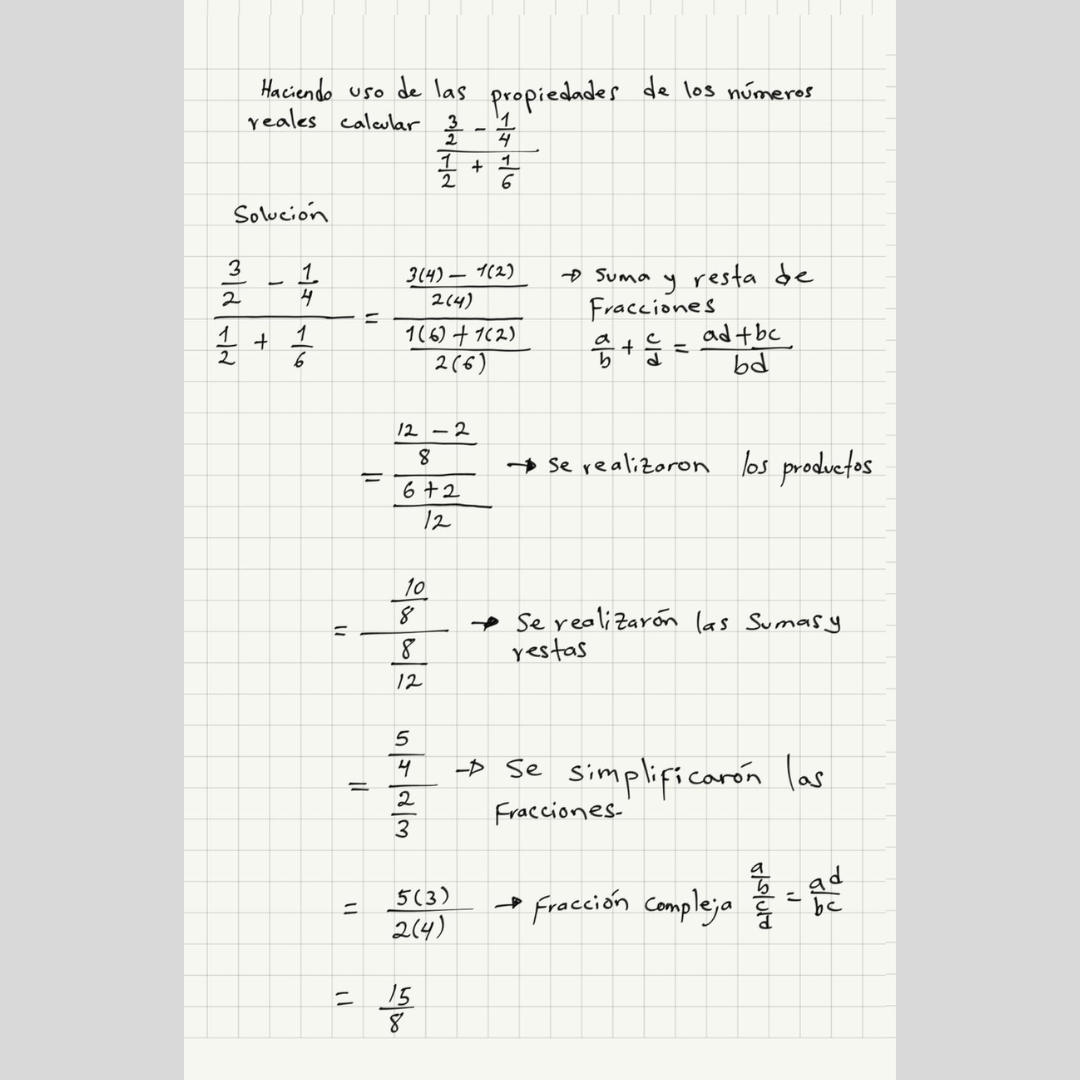 Haciendo uso de las propiedades de los números
reales calcular (3/2 - 1/4)/(1/2 + 1/6)
Solución
(3/2 - 1/4)/(1/2 + 1/6) = ((3(4) - 1(2))/(2(4)))/((1(6) + 1(2))/(2(6))) → suma y resta de
Fracciones
a/b + c/d = (ad+bc)/bd
= ((12 - 2)/8)/((6+2)/12) → se realizaron los productos
= (10/8)/(8/12) → Se realizarón las Sumas y
restas
= (5/4)/(2/3) → Se simplificarón las
Fracciones-
= 5(3)/2(4) → Fracción compleja (a/b)/(c/d) = ad/bc
= 15/8